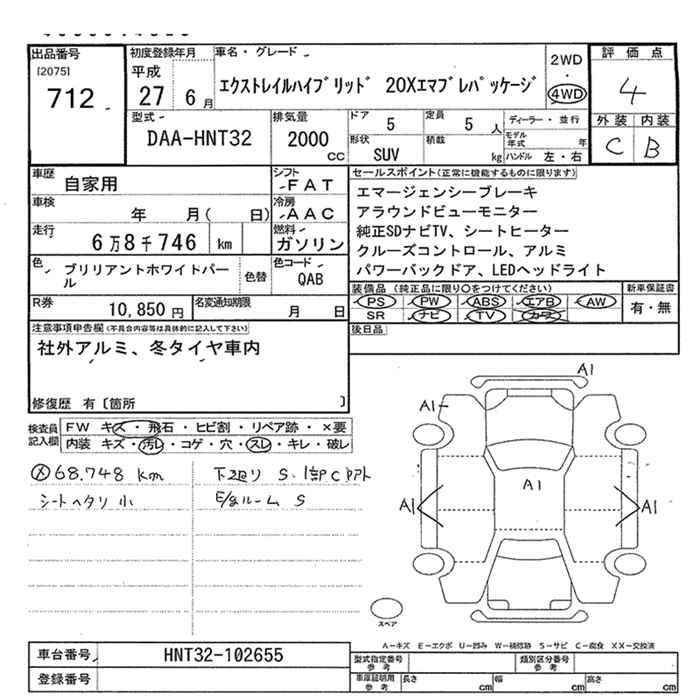 出品番号
[2075]
712
初度登録年月
平成
27 6月
車名・グレード
エクストレイルハイブリッド 20Xエマブレパッケージ
2WD
・
4WD
評価点
4
外装 内装
C B
型式
DAA-HNT32
排気量
2000
CC
ドア 5
定員 5 人
形状
SUV
積載
kg
ディーラー・並行
モデル年式 年
ハンドル 左・右
車歴
自家用
シフト
FAT
車検
年 月( 日)
冷房
AAC
走行
6万8千746 km
燃料
ガソリン
色
ブリリアントホワイトパール
色替
色コード
QAB
R券
10,850円
名変通知期限
月 日
セールスポイント(正常に機能するものに限ります)
エマージェンシーブレーキ
アラウンドビューモニター
純正SDナビTV、シートヒーター
クルーズコントロール、アルミ
パワーバックドア、LEDヘッドライト
装備品 (純正品に限り○をつけてください)
PS PW ABS エアB AW
SR ナビ TV カワ
新車保証書
有・無
後日品
注意事項申告欄(不具合内容等は具体的に記入して下さい)
社外アルミ、冬タイヤ車内
修復歴 有〔箇所 〕
検査員
記入欄
FW キズ・飛石・ヒビ割・リペア跡・×要
内装 キズ・汚レ・コゲ・穴・スレ・キレ・破レ
68.748 km
シートヘタリ 小
下廻り S.
E/gルーム S
A1
A1
A1
A1
A1
スペア
A−キズ E−エクボ U−凹み W−補修跡 S−サビ C−腐食 XX−交換済
車台番号
HNT32-102655
登録番号
型式指定番号
参考
類別区分番号
参考
車庫証明用
参考
長さ cm
幅 cm
高さ cm